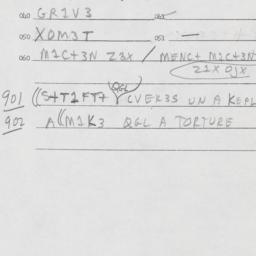 040 GR1V3
050 XOM3T 051 —
060 M1C+3N Z3X / MENC+ M1C+3N
Z1X OJX
901 ((S+T1F7+ QGL CVEK3S UN A KEPL
902 A((M1K3 QGL A TORTURE